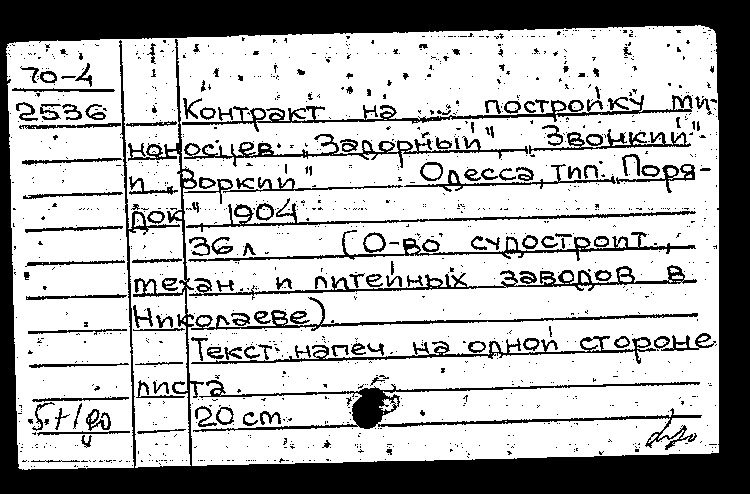 70-4
2536 Контракт на постройку ми-
ноносцев „Задорный", „Звонкий"
и „Зоркий" Одесса, тип. „Поря-
док", 1904.
36 л. (О-во судостроит.,
механ. и литейных заводов в
Николаеве).
Текст напеч. на одной стороне
листа.
20 cm.